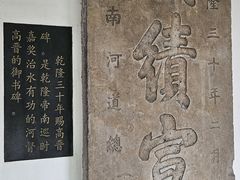 隆三十年二月
績宣
南河道總
乾隆三十年赐高晋
碑。是乾隆帝南巡时
嘉奖治水有功的河督
高晋的御书碑。